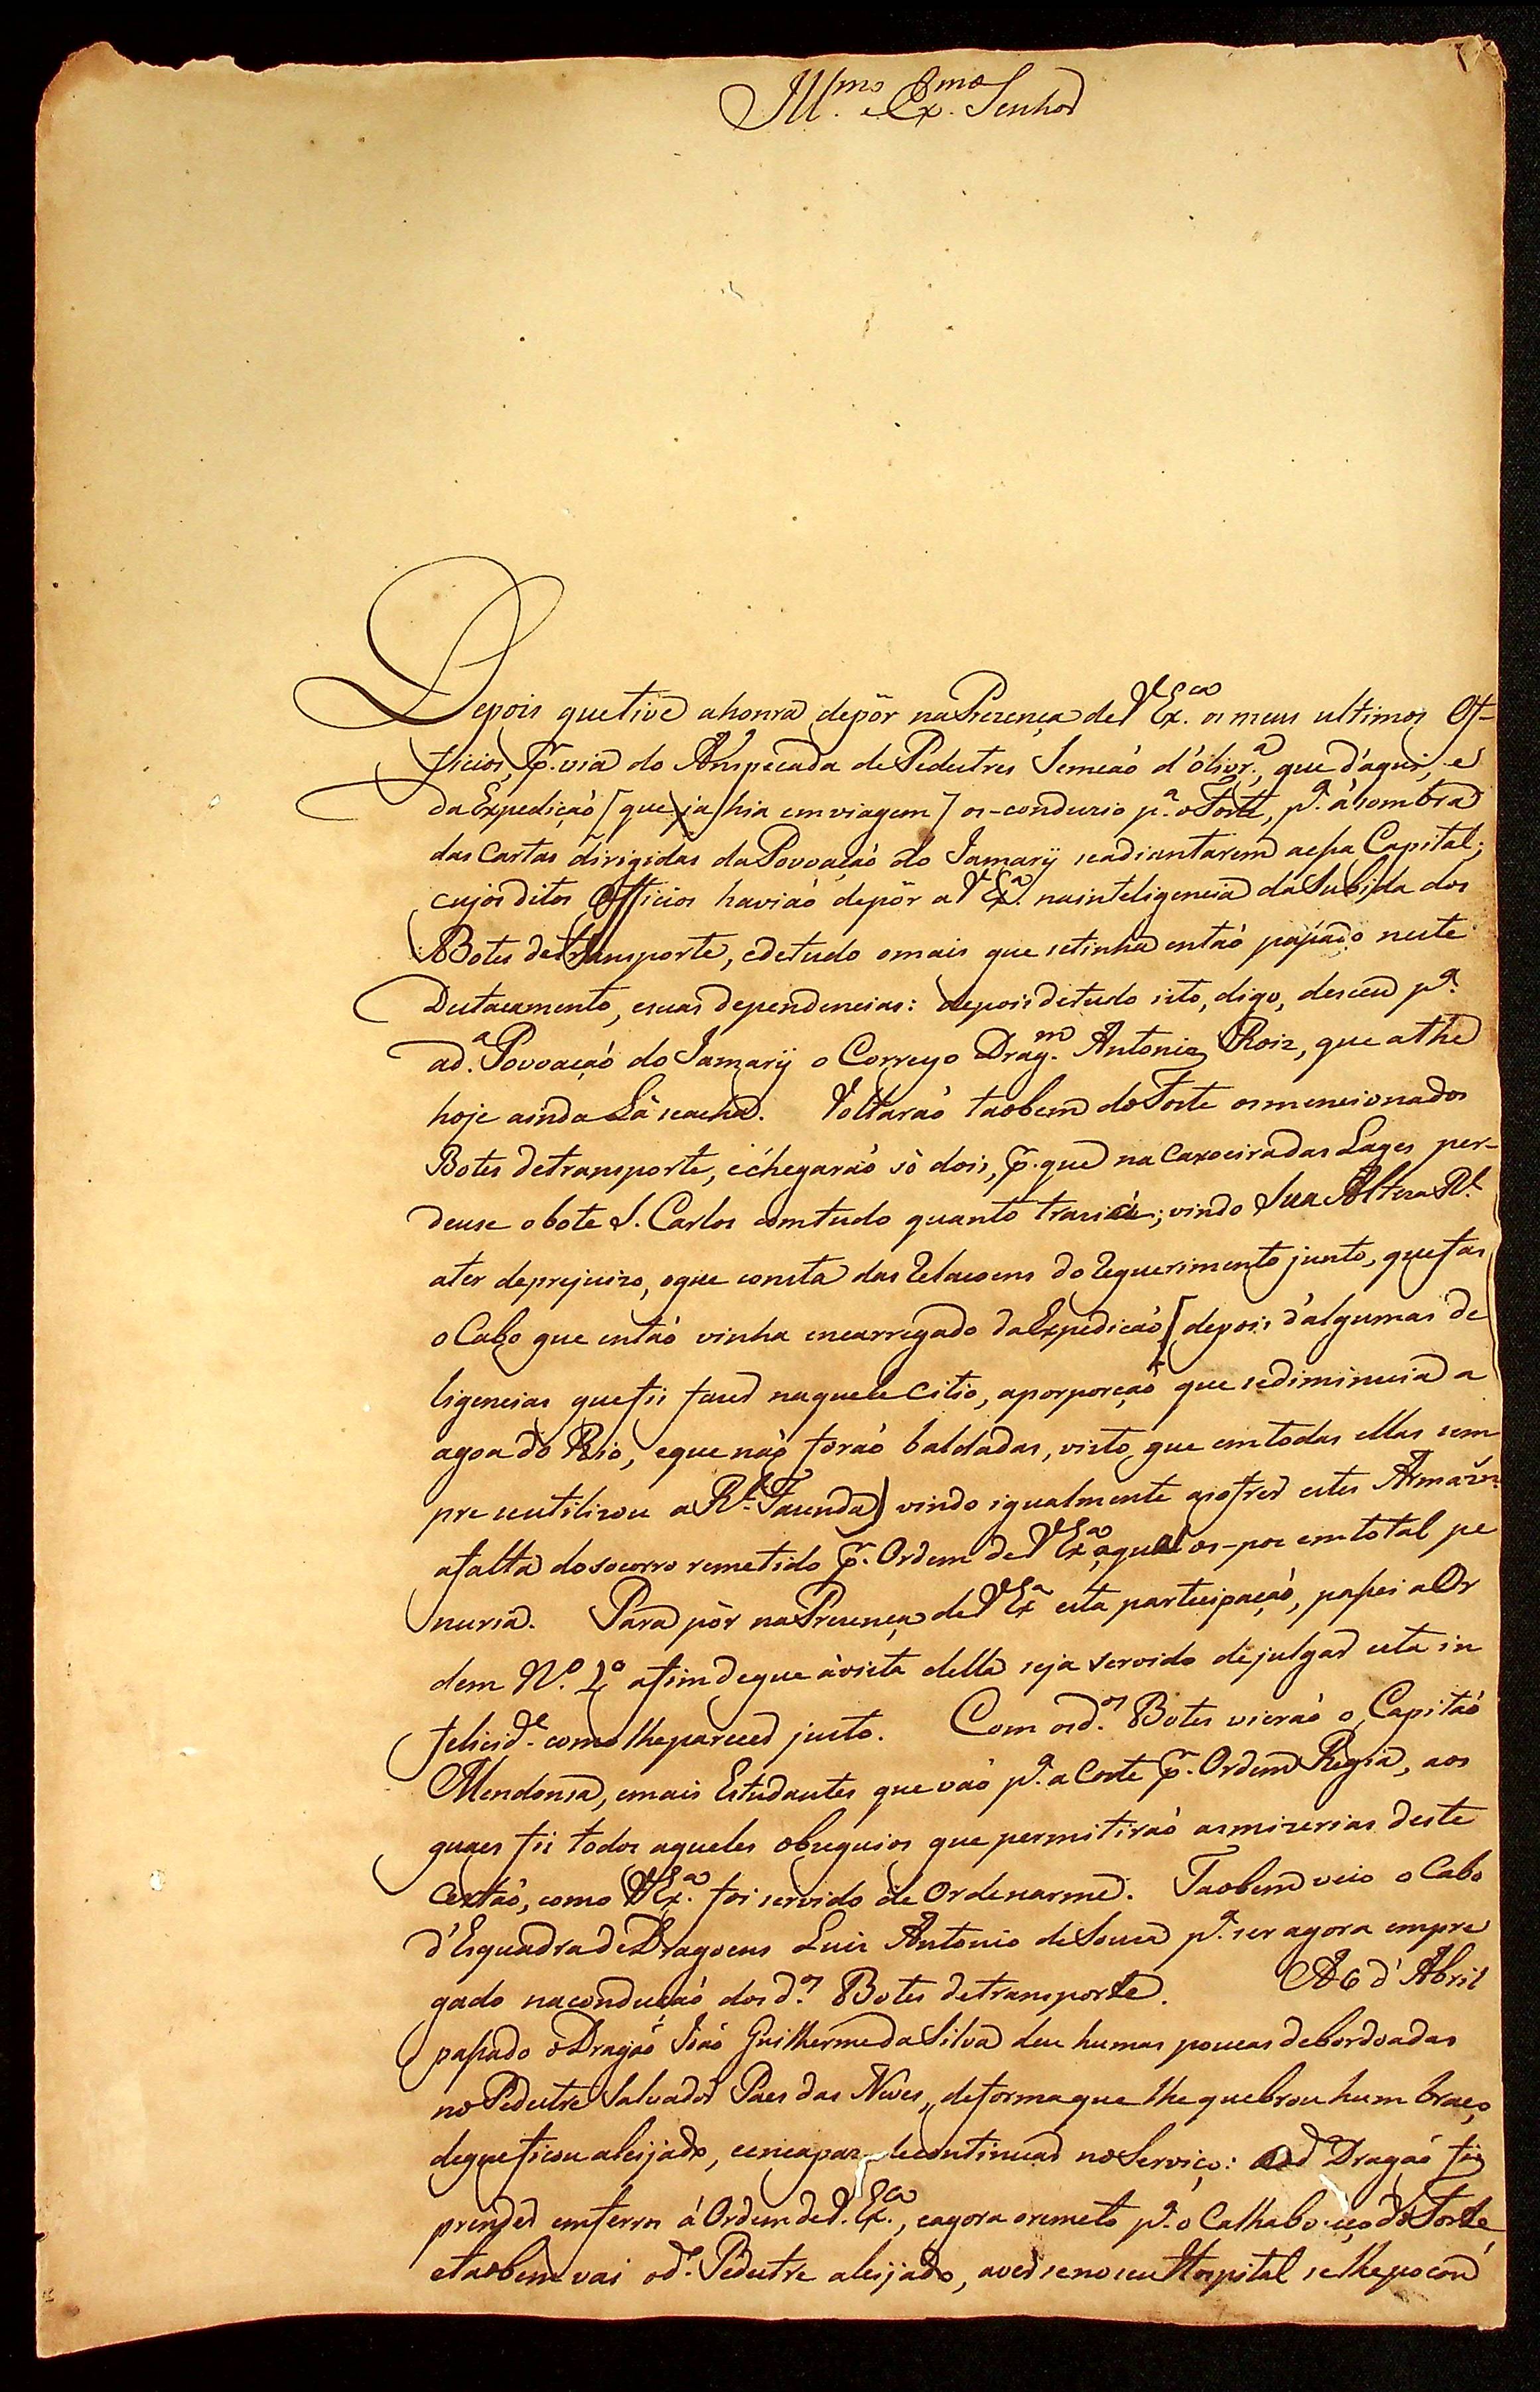 Ill.mo e Ex.mo Senhor
Depois que tive a honra de pôr na Prezença de V Ex.ca os meus ultimos Of-
ficios, p.r via do Anspecada de Pedestres Semeaó d'Olivr.a, que d'aqui, e
da Expedição [que ja hia em viagem] os-conduzio p.a o Forte, p.a á sombra
das Cartas dirigidas da Povoação do Jamarÿ se adiantarem a essa Capital;
cujos ditos Officios haviaó de pôr a V Ex.a na inteligencia da Subida dos
Botes de transporte, e de tudo o mais que se tinha entaó passado neste
Destacamento, e suas dependencias: depois de tudo isto, digo, desceu p.a
a d.a Povoaçaó do Jamarÿ o Correyo Drag.m Antonio Roiz, que athe
hoje ainda Lâ se acha. Voltaraó taobem do Forte os mencionados
Botes de transporte, e chegaraó sò dois, p.r que na Caxoeira das Lages per-
deuse o bote S. Carlos com tudo quanto trazia; vindo Sua Alteza R.l
a ter de prejuizo, o que consta das Relacoens do Requerimento junto, que fas
o Cabo que entaó vinha encarregado da Expedicaó [depois d'algumas de
ligencias que fis fazer naquele Citio, a porporçaó que se diminuia a
agoa do Rio, e que naó foraó baldadas, visto que em todas ellas sem
pre se utilizou a R.l Fazenda) vindo igualmente a sofrer estes Armazn.s
a falta do socorro remetido p.r Ordem de V Ex.a, a qual os-poe em total pe
nuria. Para pôr na Prezença de V Ex.a esta participaçaó, passei a Or
dem N.o 1.o afim de que à vista della seja servido de julgar esta in
felicid.e como lhe parecer justo. Com os d.os Botes vieraó o Capitaó
Mendonsa, e mais Estudantes que vaó p.a a Corte p.r Ordem Regia, aos
quaes fis todos aqueles obzequios que permitiraó as mizerias deste
Certaó, como V Ex.a foi servido de Ordenarme. Taobem veio o Cabo
d'Esquadra de Dragoens Luiz Antonio de Souza p.a ser agora empre
gado na conduçaó dos d.os Botes de transporte. A 6 d'Abril
passado o Dragaó Joaó Guilherme da Silva deu humas poucas de bordoadas
no Pedestre Salvador Paes das Neves, de forma que lhe quebrou hum braço,
de que ficou aleijado, e encapaz de continuar no Serviço: ao d.o Dragaó fis
prender em ferros á Ordem de V. Ex.ca, e agora o remeto p.a o Calhabouço do Forte,
e taobem vai o d.o Pedestre aleijado, a ver se no seu Hospital se lhe pocon